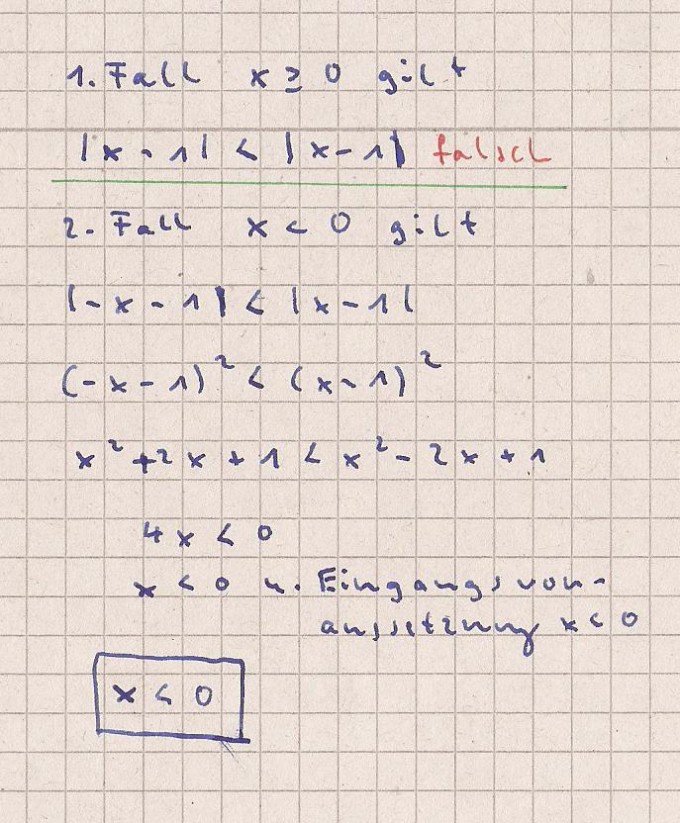 1. Fall x ≥ 0 gilt
|x - 1| < |x - 1| falsch
2. Fall x < 0 gilt
|-x - 1| < |x - 1|
(-x - 1)² < (x - 1)²
x² + 2x + 1 < x² - 2x + 1
4x < 0
x < 0 u. Eingangsvor-
aussetzung x < 0
x < 0